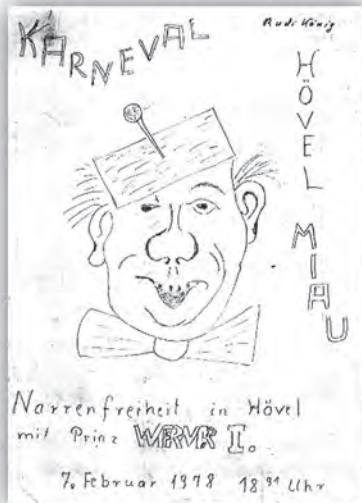 KARNEVAL
Rudi König
HÖVEL MIAU
Narrenfreiheit in Hövel
mit Prinz WERNER I.
7. Februar 1978 Uhr